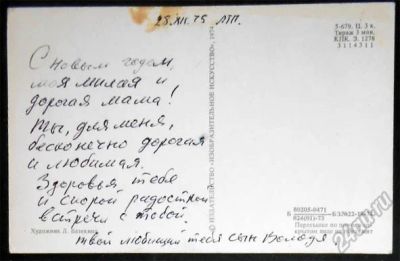 25.XII.75 ЛТП.
С Новым годом,
моя милая и
дорогая мама!
Ты, для меня,
бесконечно дорогая
и любимая.
Здоровья тебе
и скорой радостной
встречи с тобой.
твой любящий тебя сын Володя
Художник Л.
© ИЗДАТЕЛЬСТВО «ИЗОБРАЗИТЕЛЬНОЕ ИСКУССТВО», 1974
5-679. Ц. 3 к.
Тираж 3 млн.
КПК. З. 1278
3114311
Б 80205-0471
024(01)-75
24au.ru